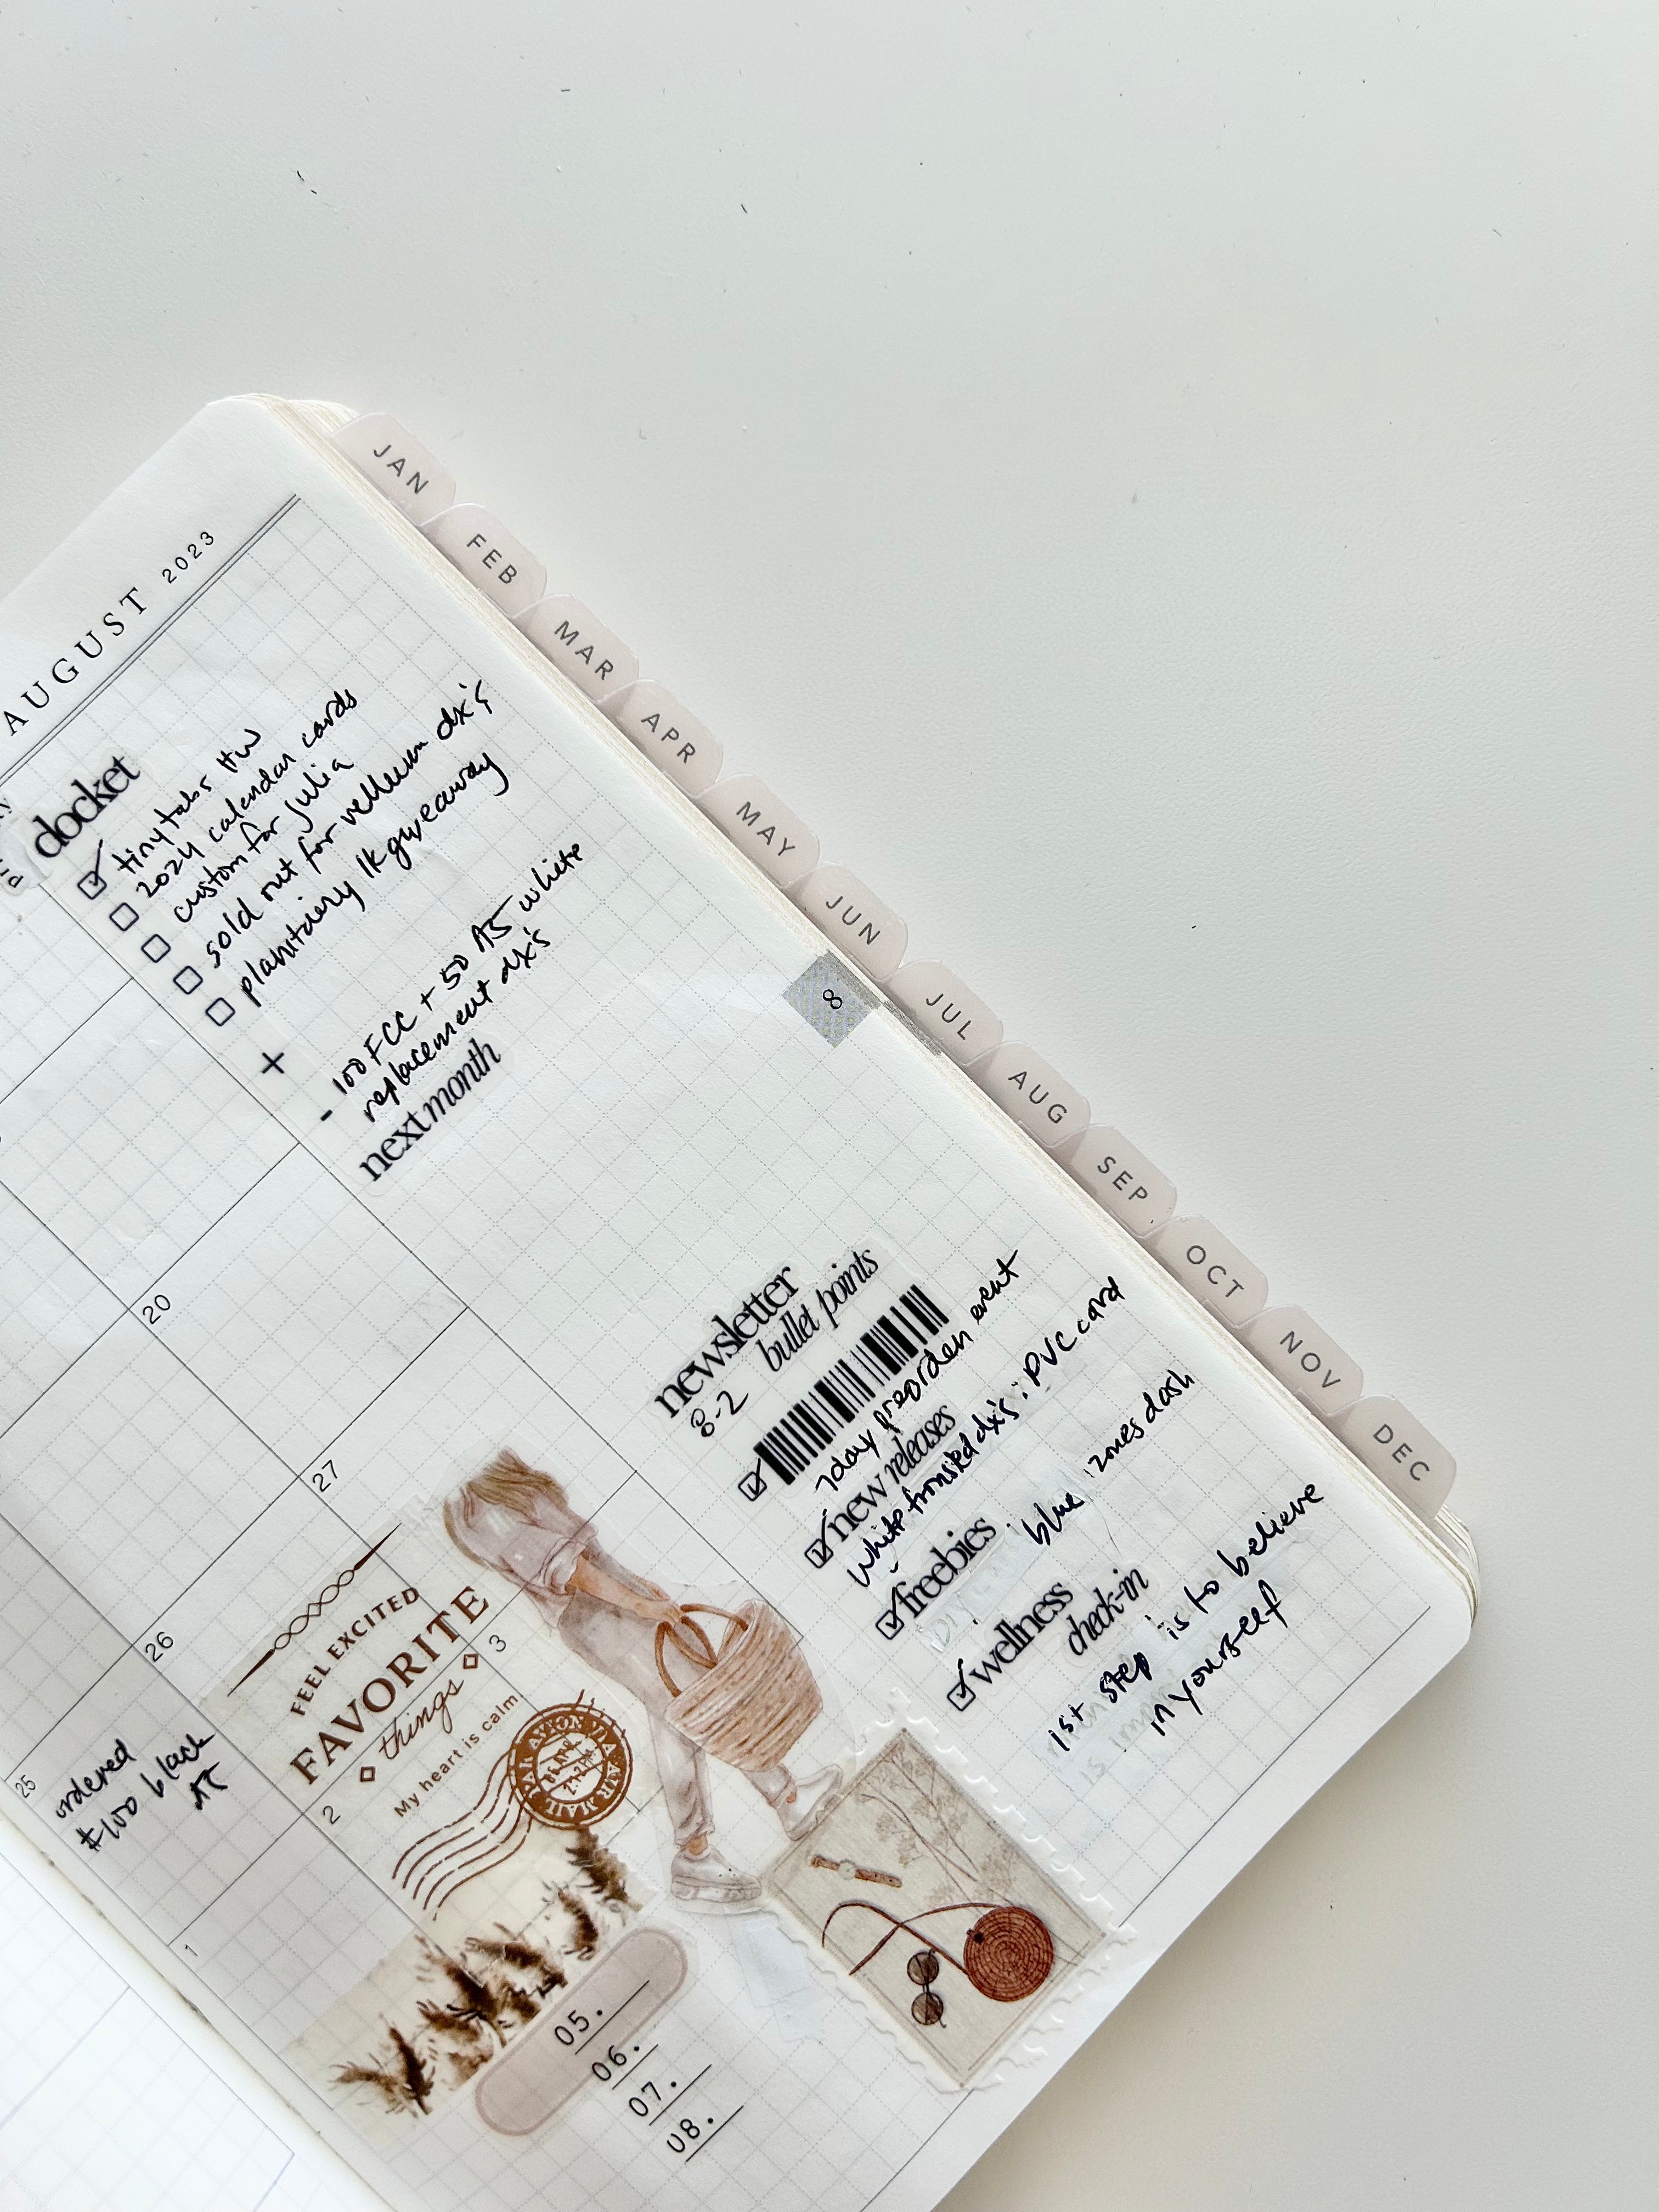 AUGUST 2023
docket
tiny tabs HW
2024 calendar cards
custom for Julia
sold out for vellum dx's
1k giveaway
+
- 100 FCC + 50 A5 white
replacement dx's
next month
8
JAN
FEB
MAR
APR
MAY
JUN
JUL
AUG
SEP
OCT
NOV
DEC
newsletter
bullet points
8-2
7 day preorder event
new releases
white dx's: PVC card
freebies
blue zones dash
wellness
check-in
1st step is to believe
in yourself
20
27
26
25
ordered
#100 black
1
2
3
FEEL EXCITED
FAVORITE
things
My heart is calm
PAR AVION VIA AIR MAIL
05.
06.
07.
08.